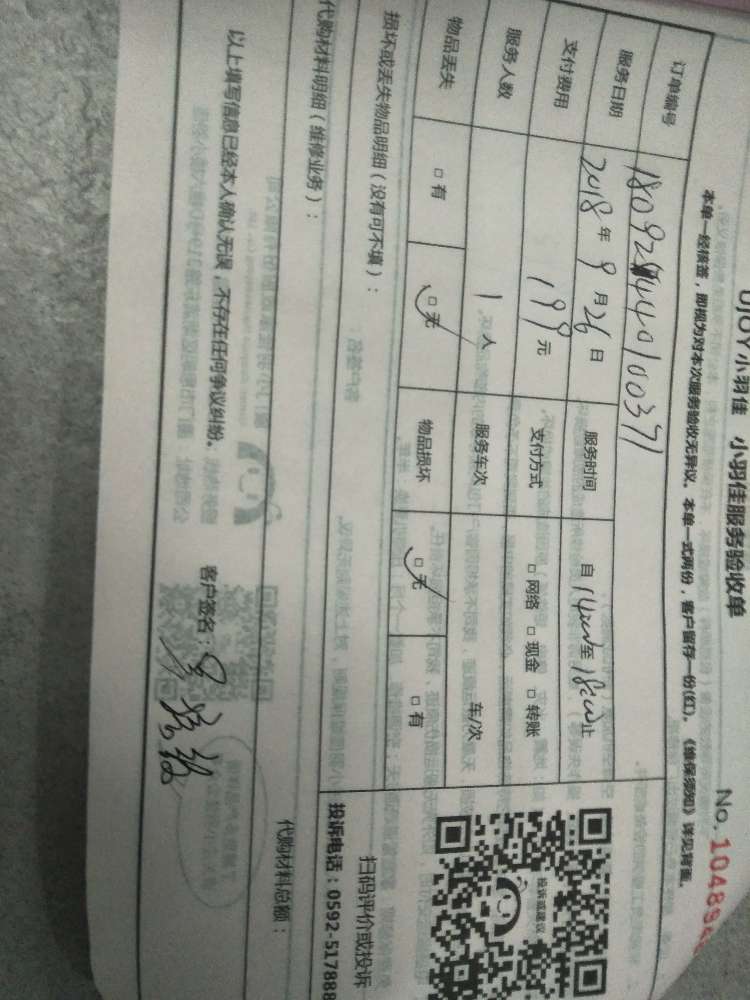 UJOY小羽佳 小羽佳服务验收单
No.
本单一经核签，即视为对本次服务验收无异议。本单一式两份，客户留存一份(红)。《维保须知》详见背面。
订单编号
服务日期 2018年9月26日 服务时间 自14:00至18:00止
支付费用 199元 支付方式 □网络 □现金 □转账
服务人数 1人 服务车次 车/次
物品丢失 □有 □无 物品损坏 □无 □有
损坏或丢失物品明细（没有可不填）：
投诉或建议
扫码评价或投诉
投诉电话：0592-517888
代购材料明细（维修业务）：
代购材料总额：
以上填写信息已经本人确认无误，不存在任何争议纠纷。 客户签名：